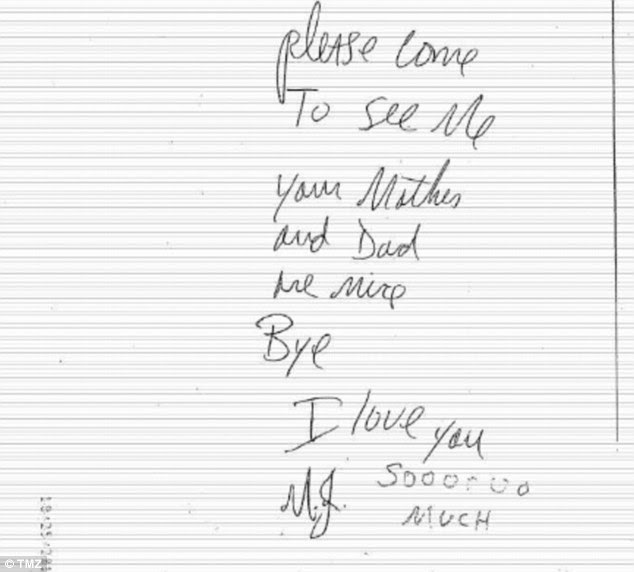 please come
To see Me
your Mother
and Dad
are nice
Bye
I love you
M.J. Sooooooo
MUCH
© TMZ